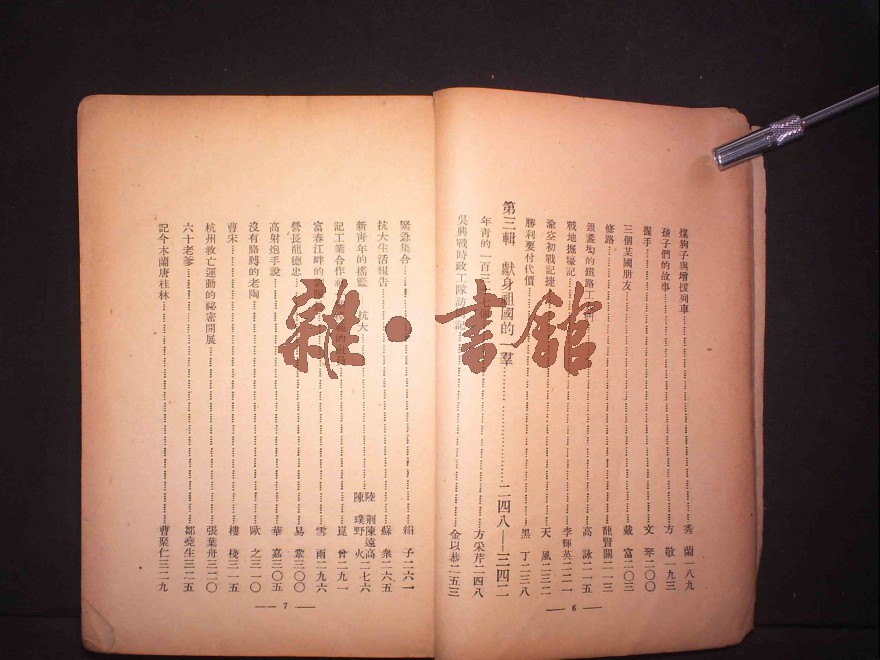 煤狗子與增援列車 秀蘭 一八九
孩子們的故事 方敬 一九三
握手 文琴 二〇〇
三個某國朋友 戴富 二〇三
修路 龍賢關 二一三
的鐵路工 高詠 二一五
戰地掘壕記 李輝英 二二一
渝空初戰記捷 天風 二三二
勝利要付代價 黑丁 二三八
第三輯 獻身祖國的一羣 二四八——三四二
年青的一百二十七個 方采芹 二四八
吳興戰時政工隊訪問記 金以恭 二五三
— 6 —
緊急集合 絹子 二六一
抗大生活報告 蘇衆 二六五
新青年的搖籃 抗大 陸璞 荆野 陳遠高 陳火 二七六
記工業合作 崑曾 二九一
富春江畔的 雪雨 二九六
營長龍德忠 易鞏 三〇〇
高射炮手說 華嘉 三〇五
沒有胳膊的老陶 歐之 三一〇
曹宋 樓棧 三一五
杭州救亡運動的祕密開展 張葉舟 三二〇
六十老爹 鄒堯生 三二五
記今木蘭唐桂林 曹聚仁 三二九
— 7 —
雜·書館